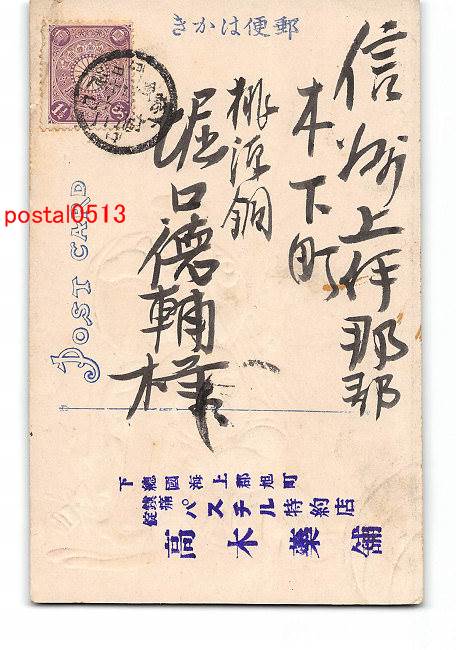 郵便はかき
信州上伊那郡
木下町
桃源銅
堀口德輔
様
POST CARD
下總國海上郡旭町
錠鎮痛パスチル特約店
高木藥舗
postal0513